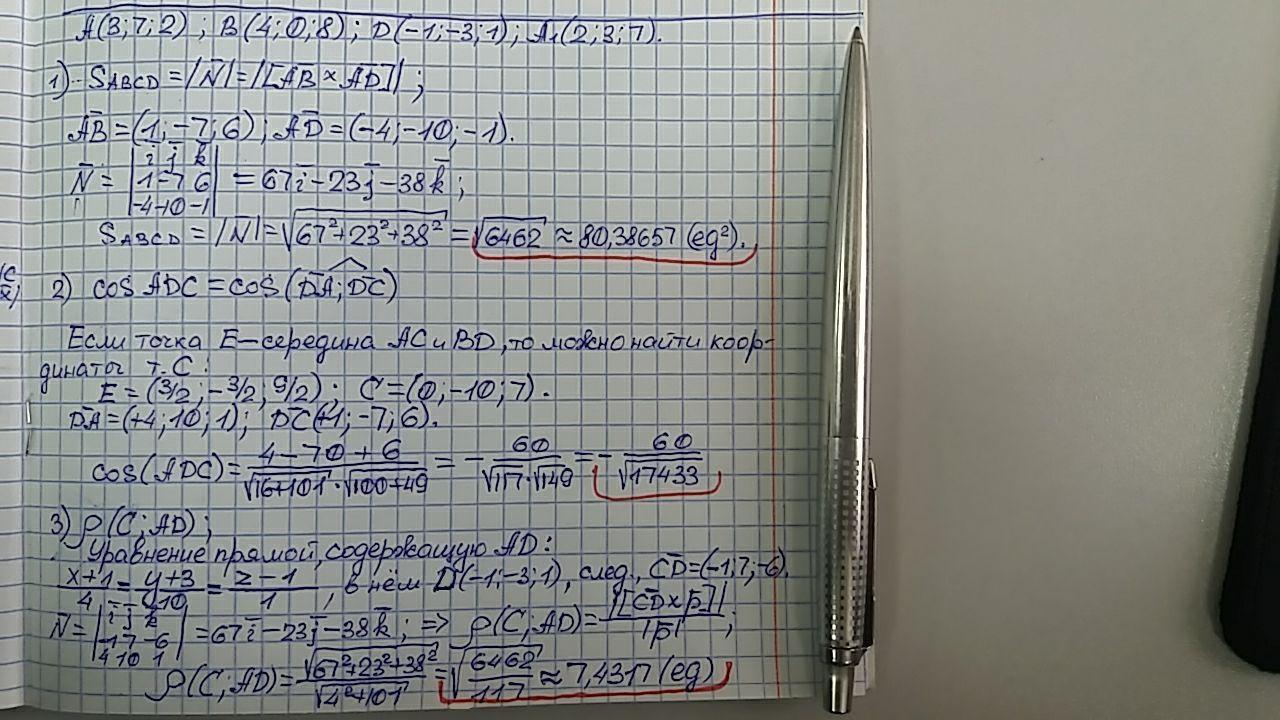 A(3;7;2); B(4;0;8); D(-1;-3;1); A₁(2;3;7).
1) S_ABCD = |N̄| = |[AB̄ × AD̄]|;
AB̄ = (1;-7;6); AD̄ = (-4;-10;-1).
N̄ = |ī j̄ k̄; 1 -7 6; -4 -10 -1| = 67ī - 23j̄ - 38k̄;
S_ABCD = |N̄| = √(67²+23²+38²) = √6462 ≈ 80,38657 (ед²).
2) cos ADC = cos(DĀ; DC̄)
Если точка E – середина AC и BD, то можно найти коор-
динаты т. C:
E = (3/2; -3/2; 9/2); C = (0; -10; 7).
DĀ = (+4; 10; 1); DC̄(+1; -7; 6).
cos(ADC) = (4-70+6)/(√(16+101)·√(100+49)) = -60/(√117·√149) = -60/√17433
3) ρ(C; AD);
Уравнение прямой, содержащую AD:
(x+1)/4 = (y+3)/10 = (z-1)/1, в нём D(-1;-3;1), след., CD̄ = (-1; 7; -6).
N̄ = |ī j̄ k̄; -1 7 -6; 4 10 1| = 67ī - 23j̄ - 38k̄; => ρ(C; AD) = |[CD̄ × p̄]|/|p̄|;
ρ(C; AD) = √(67²+23²+38²)/√(4²+101) = √(6462/117) ≈ 7,4317 (ед)